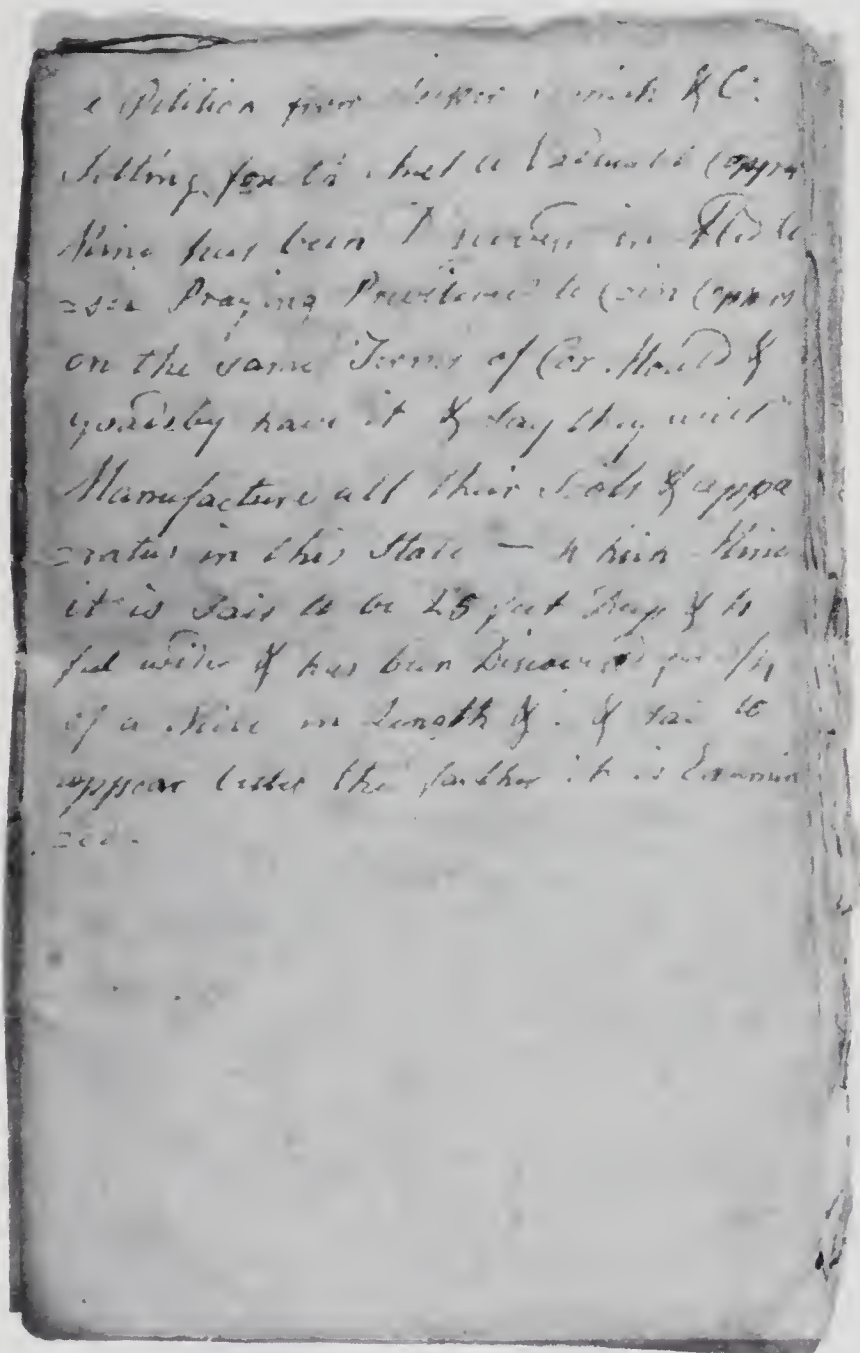 a Petition from Smith & C:
Setting forth that a Valuable Copper
Mine has been in
Praying Priviledge to Coin Coppers
on the same Terms of Cox Mould &
goadsby have it & say they will
Manufacture all their Tools & appa
=ratus in this State — which Mine
it is Said to be 25 feet Deep & 4
feet wide & has been Discovered for 1/4
of a Mile in Length & : & said to
appear better the farther it is Examin
=ed.